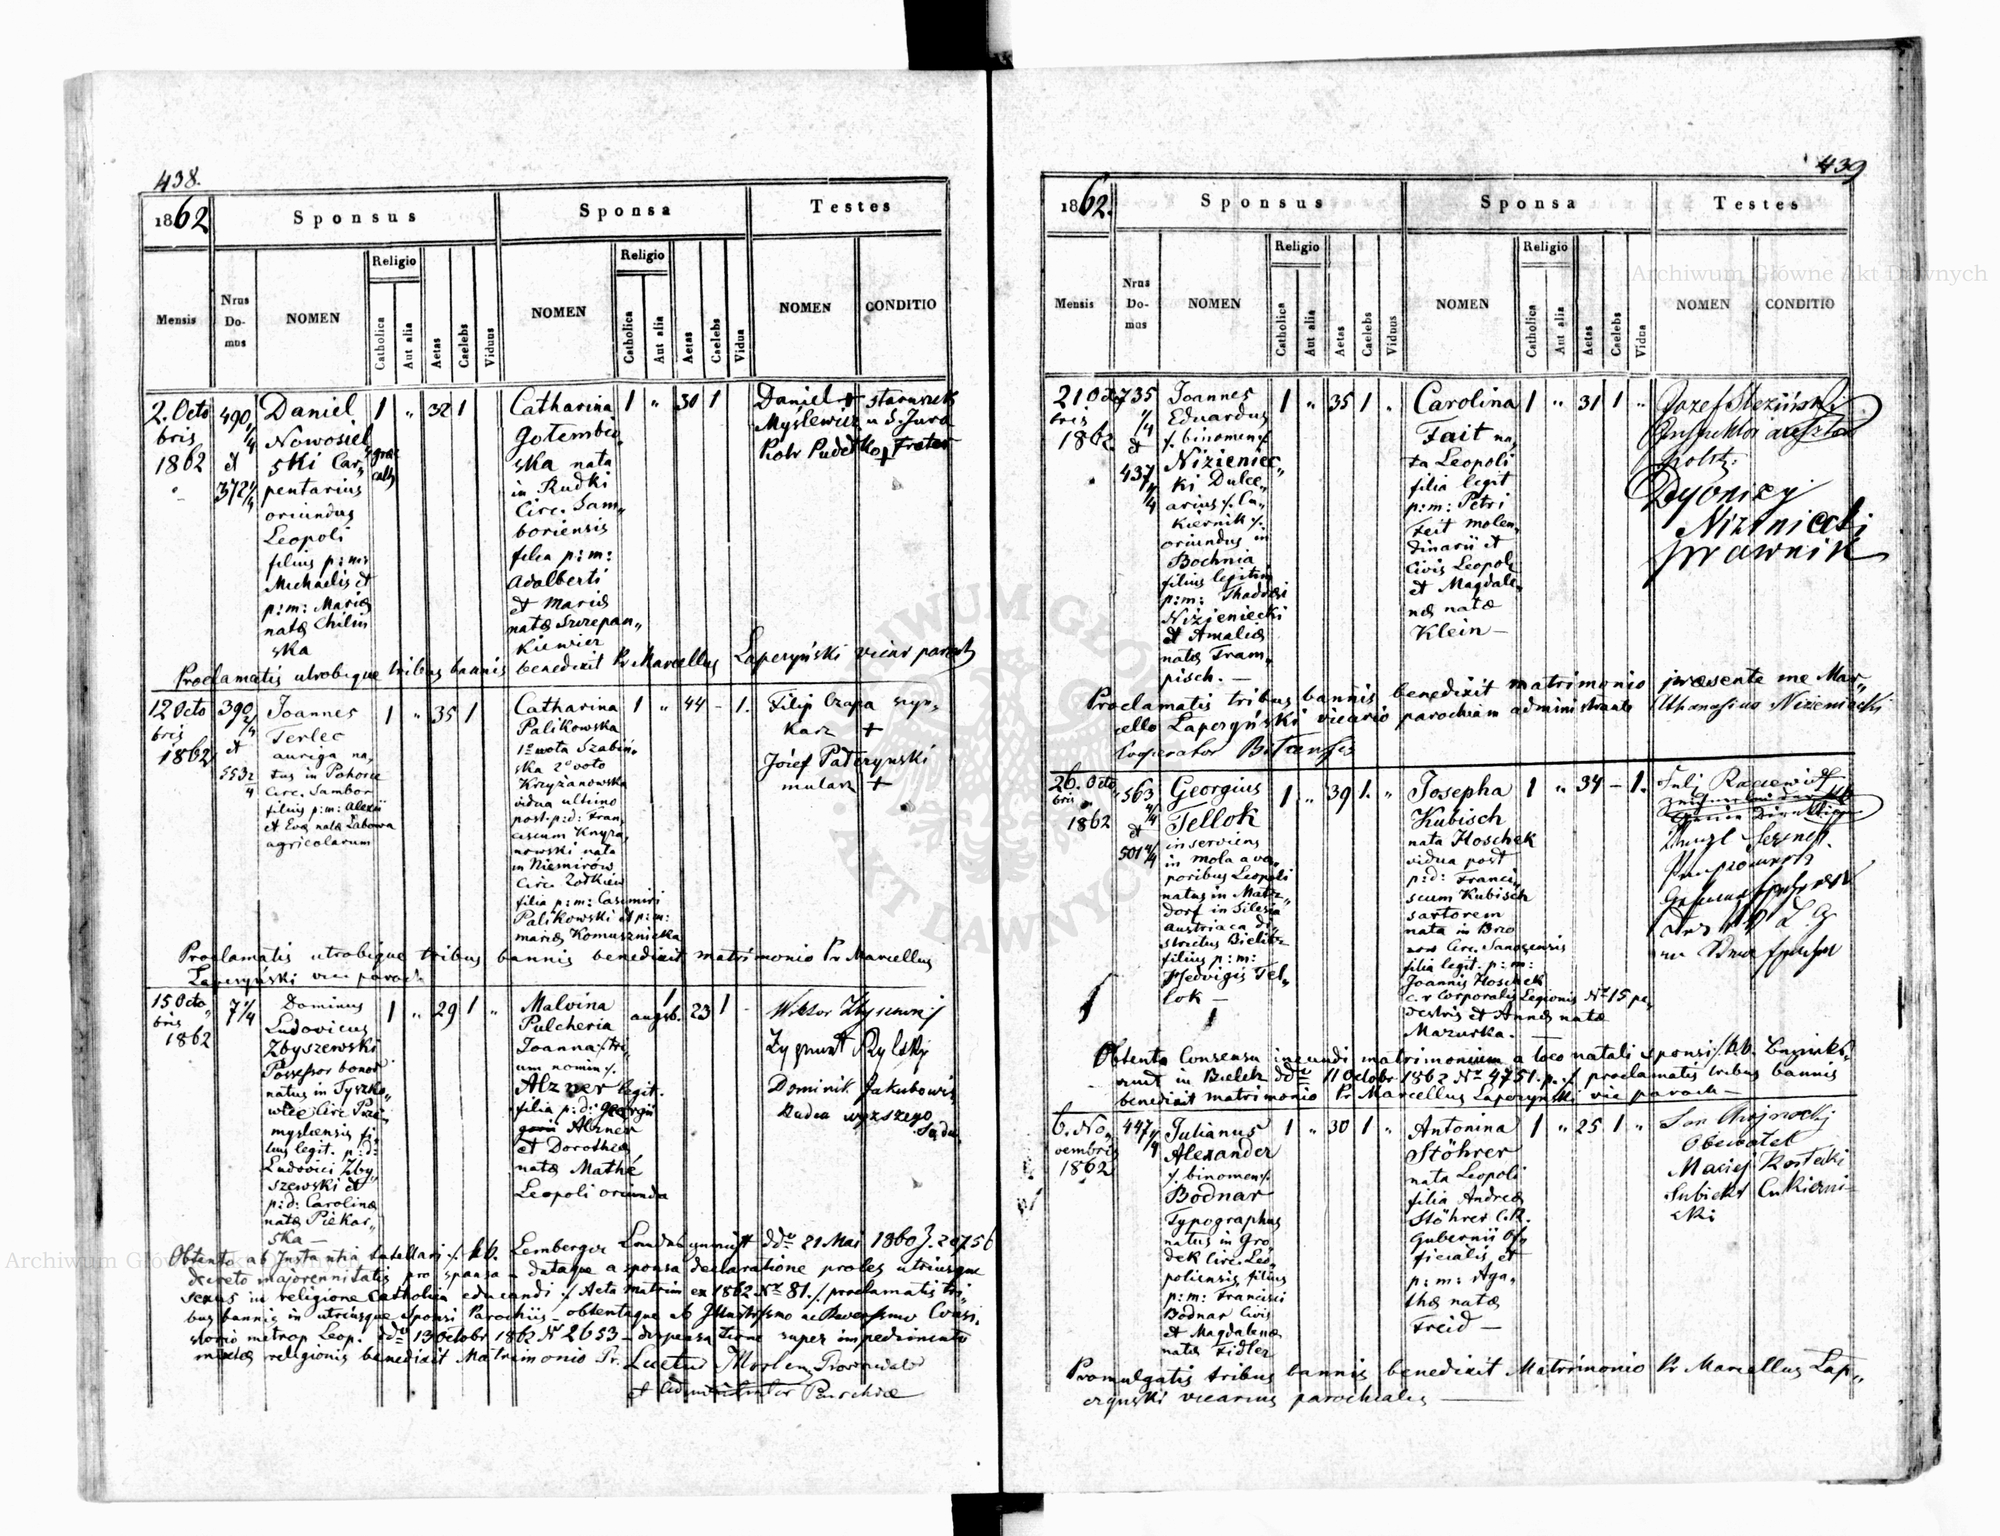 438.
1862
Sponsus
Sponsa
Testes
Mensis
Nrus Do-mus
NOMEN
Religio
Catholica
Aut alia
Aetas
Caelebs
Viduus
NOMEN
Religio
Catholica
Aut alia
Aetas
Caelebs
Vidua
NOMEN
CONDITIO
2. Octo
bris
1862
490
1/4
et
372 1/4
Daniel
Nowosiel
ski Car„
pentarius
oriundus
Leopoli
filius p: m:
Michaelis et
p: m: Mariæ
natæ Chilin
ska
1 „ 32 1
Catharina
Gotembio„
ska nata
in Rudki
Circ. Sam„
boriensis
filia p: m:
Adalberti
et Mariæ
natæ Szczepan„
kiewicz
1 „ 30 1
Daniel +
Myślewicz
Piotr Pudełko +
Proclamatis utrobique tribus bannis benedixit Pr Marcellus Laperzyński vicar paroch
12 Octo
bris
1862
390
2/4
et
553 2/4
Joannes
Terlec
auriga na„
tus in
Circ. Sambor
filius p: m: Alexii
et Eva nata Labowa
agricolarum
1 „ 35 1
Catharina
Palikowska
1º vota Szabiń„
ska 2º voto
Krzyżanowska
vidua ultimo
post. p: d: Fran„
ciscum Krzyża„
nowski nata
in Niemirów
Circ. Żołkiew
filia p: m: Casimiri
Palikowski et p: m:
Mariæ Komusznicka
1 „ 44 - 1.
Filip Czapa
+
Józef Paderzynski
mularz +
Proclamatis utrobique tribus bannis benedixit matrimonio Pr Marcellus
Laperzyński vic: paroch
15 Octo
bris
1862
7 1/4
Dominus
Ludovicus
Zbyszewski
Possessor bonor
natus in Tyszko„
wice Circ Prze„
mysliensis fi„
lius legit. p: d:
Ludovici Zby„
szewski et
p: d: Carolinæ
natæ Piekar„
ska —
1 „ 29 1 „
Malvina
Pulcheria
Joanna /: tri„
um nomin :/
Alzner legit.
filia p: d: Georgii
Alzner
et Dorotheæ
natæ Mathé
Leopoli oriunda
1
augsb. 23 1 -
Wiktor Zbyszewski
Zygmunt Rylski
Dominik Jakubowicz
Radca wyższego
Sądu
Obtento ab Instantia tutellari /: kk. Lemberger Landes ddº 21 Mai 1860 Z. 20756
decreto majorennitatis pro sponsa — dataque a sponsa declaratione proles utriusque
sexus in religione Catholica educandi /: Acta matrim ex 1862 Nr 81. :/ proclamatis tri„
bus bannis in utriusque sponsi Parochiis — obtentaque ab Illustrissmo ac Reverssmo Consi„
storio metrop Leop. ddº 13 Octobr 1862 Nr 2653 — dispensatione super impedimento
mixtæ religionis benedixit Matrimonio Pr.
et Administrator Parochiæ
439
1862.
Sponsus
Sponsa
Testes
Mensis
Nrus Do-mus
NOMEN
Religio
Catholica
Aut alia
Aetas
Caelebs
Viduus
NOMEN
Religio
Catholica
Aut alia
Aetas
Caelebs
Vidua
NOMEN
CONDITIO
21 Octo
bris
1862
735
1/4
et
437
4/4
Joannes
Eduardus
/: binomen :/
Nizieniec„
ki Dulce„
arius /: Cu„
kiernik :/.
oriundus in
Bochnia
filius legitim
p: m: Thaddæi
Nizieniecki
et Amaliæ
natæ Tram„
pisch. —
1 „ 35 1 „
Carolina
Fait na„
ta Leopoli
filia legit
p: m: Petri
Feit molen„
dinarii et
Civis Leopoli
et Magdale„
næ natæ
Klein —
1 „ 31 1 „
Józef
Inspektor
Dyonizy
Nizniecki
prawnik
Proclamatis tribus bannis benedixit matrimonio præsente me Mar„
cello Laperzyński vicario parochiam administrante Athanasius Nizieniecki
Cooperator
26. Octo
bris
1862
563
4/4
et
501 4/4
Georgius
Tellok
inserviens
in mola a va„
poribus Leopoli
natus in Matz„
dorf in Silesia
Austriaca di„
strictus Bielitz
filius p: m:
Hedvigis Tel„
lok —
1 „ 39 1. „
Josepha
Kubisch
nata Hoschek
vidua post
p: d: Franci„
scum Kubisch
sartorem
nata in Brzo
zow Circ. Sanocensis
filia legit. p: m:
Joannis Hoschek
c. r Corporalis Legionis Nr 15 pe„
destris et Annæ natæ
Mazurka.
1 „ 34 — 1.
Obtento Consensu ineundi matrimonium a loco natali sponsi /: kk. Bezirks„
amt in Bielitz ddº 11 Octobr 1862 Nr 4751. p. :/ proclamatis tribus bannis
benedixit matrimonio Pr Marcellus Laperzyński vic paroch —
6. No„
vembris
1862
447
1/4
Julianus
Alexander
/: binomen :/
Bodnar
Typographus
natus in Gro
dek Circ. Leo„
poliensis filius
p: m: Francisci
Bodnar Civis
et Magdalenæ
natæ Fidler
1 „ 30 1 „
Antonina
Stöhrer
nata Leopoli
filia Andreæ
Stöhrer C. R.
Gubernii Of„
ficialis et
p: m: Aga„
thæ natæ
Freid —
1 „ 25 1 „
Jan
Obewatel
Maciej Kostecki
Subiekt Cukierni
cki
Promulgatis tribus bannis benedixit Matrimonio Pr Marcellus Lap„
erzyński vicarius parochialis —
Archiwum Główne Akt Dawnych